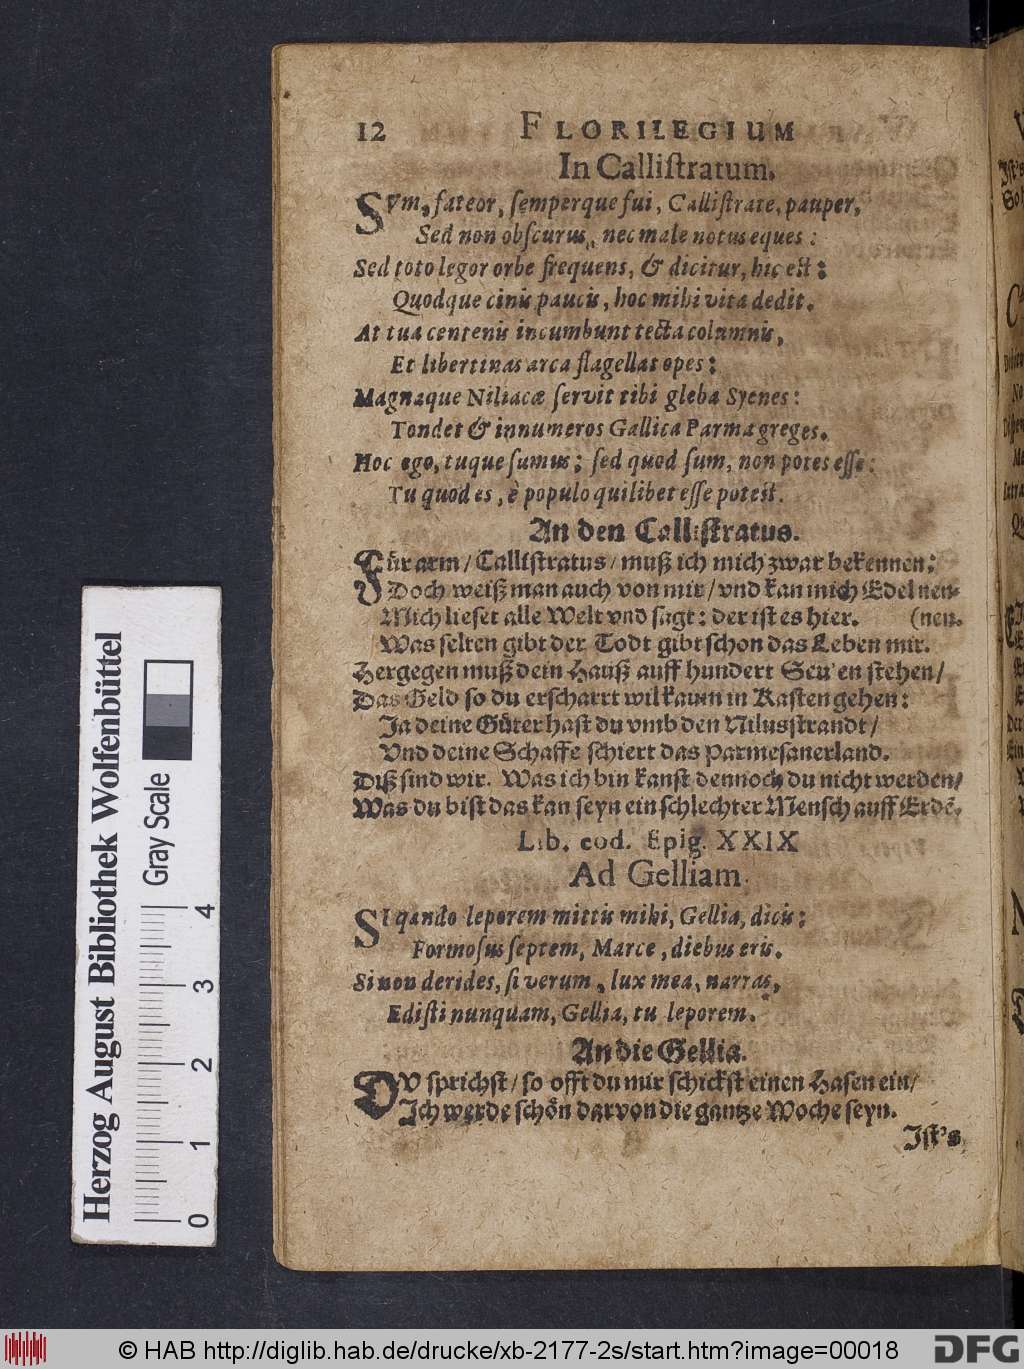 12 FLORILEGIUM
In Callistratum.
SVm, fateor, semperque fui, Callistrate, pauper,
Sed non obscurus, nec male notus eques:
Sed toto legor orbe frequens, & dicitur, hic est:
Quodque cinis paucis, hoc mihi vita dedit.
At tua centenis incumbunt tecta columnis,
Et libertinas arca flagellat opes:
Magnaque Niliacæ servit tibi gleba Syenes:
Tondet & innumeros Gallica Parma greges.
Hoc ego, tuque sumus; sed quod sum, non potes esse:
Tu quod es, è populo quilibet esse potest.
An den Callistratus.
Für arm / Callistratus / muß ich mich zwar bekennen;
Doch weiß man auch von mir / vnd kan mich Edel nen-
Mich lieset alle Welt vnd sagt: der ist es hier. (nen.
Was selten gibt der Todt gibt schon das Leben mir.
Hergegen muß dein Hauß auff hundert Seulen stehen /
Das Geld so du erscharrt wil kaum in Kasten gehen:
Ja deine Güter hast du vmb den Nilusstrandt /
Vnd deine Schaffe schiert das Parmesanerland.
Diß sind wir. Was ich bin kanst dennoch du nicht werden /
Was du bist das kan seyn ein schlechter Mensch auff Erdē.
Lib. eod. Epig. XXIX
Ad Gelliam.
SI qando leporem mittis mihi, Gellia, dicis:
Formosus septem, Marce, diebus eris.
Si non derides, si verum, lux mea, narras,
Edisti nunquam, Gellia, tu leporem.
An die Gellia.
DV sprichst / so offt du mir schickst einen Hasen ein /
Ich werde schön darvon die gantze Woche seyn.
Ist's
Herzog August Bibliothek Wolfenbüttel
Gray Scale
0 1 2 3 4
© HAB http://diglib.hab.de/drucke/xb-2177-2s/start.htm?image=00018
DFG